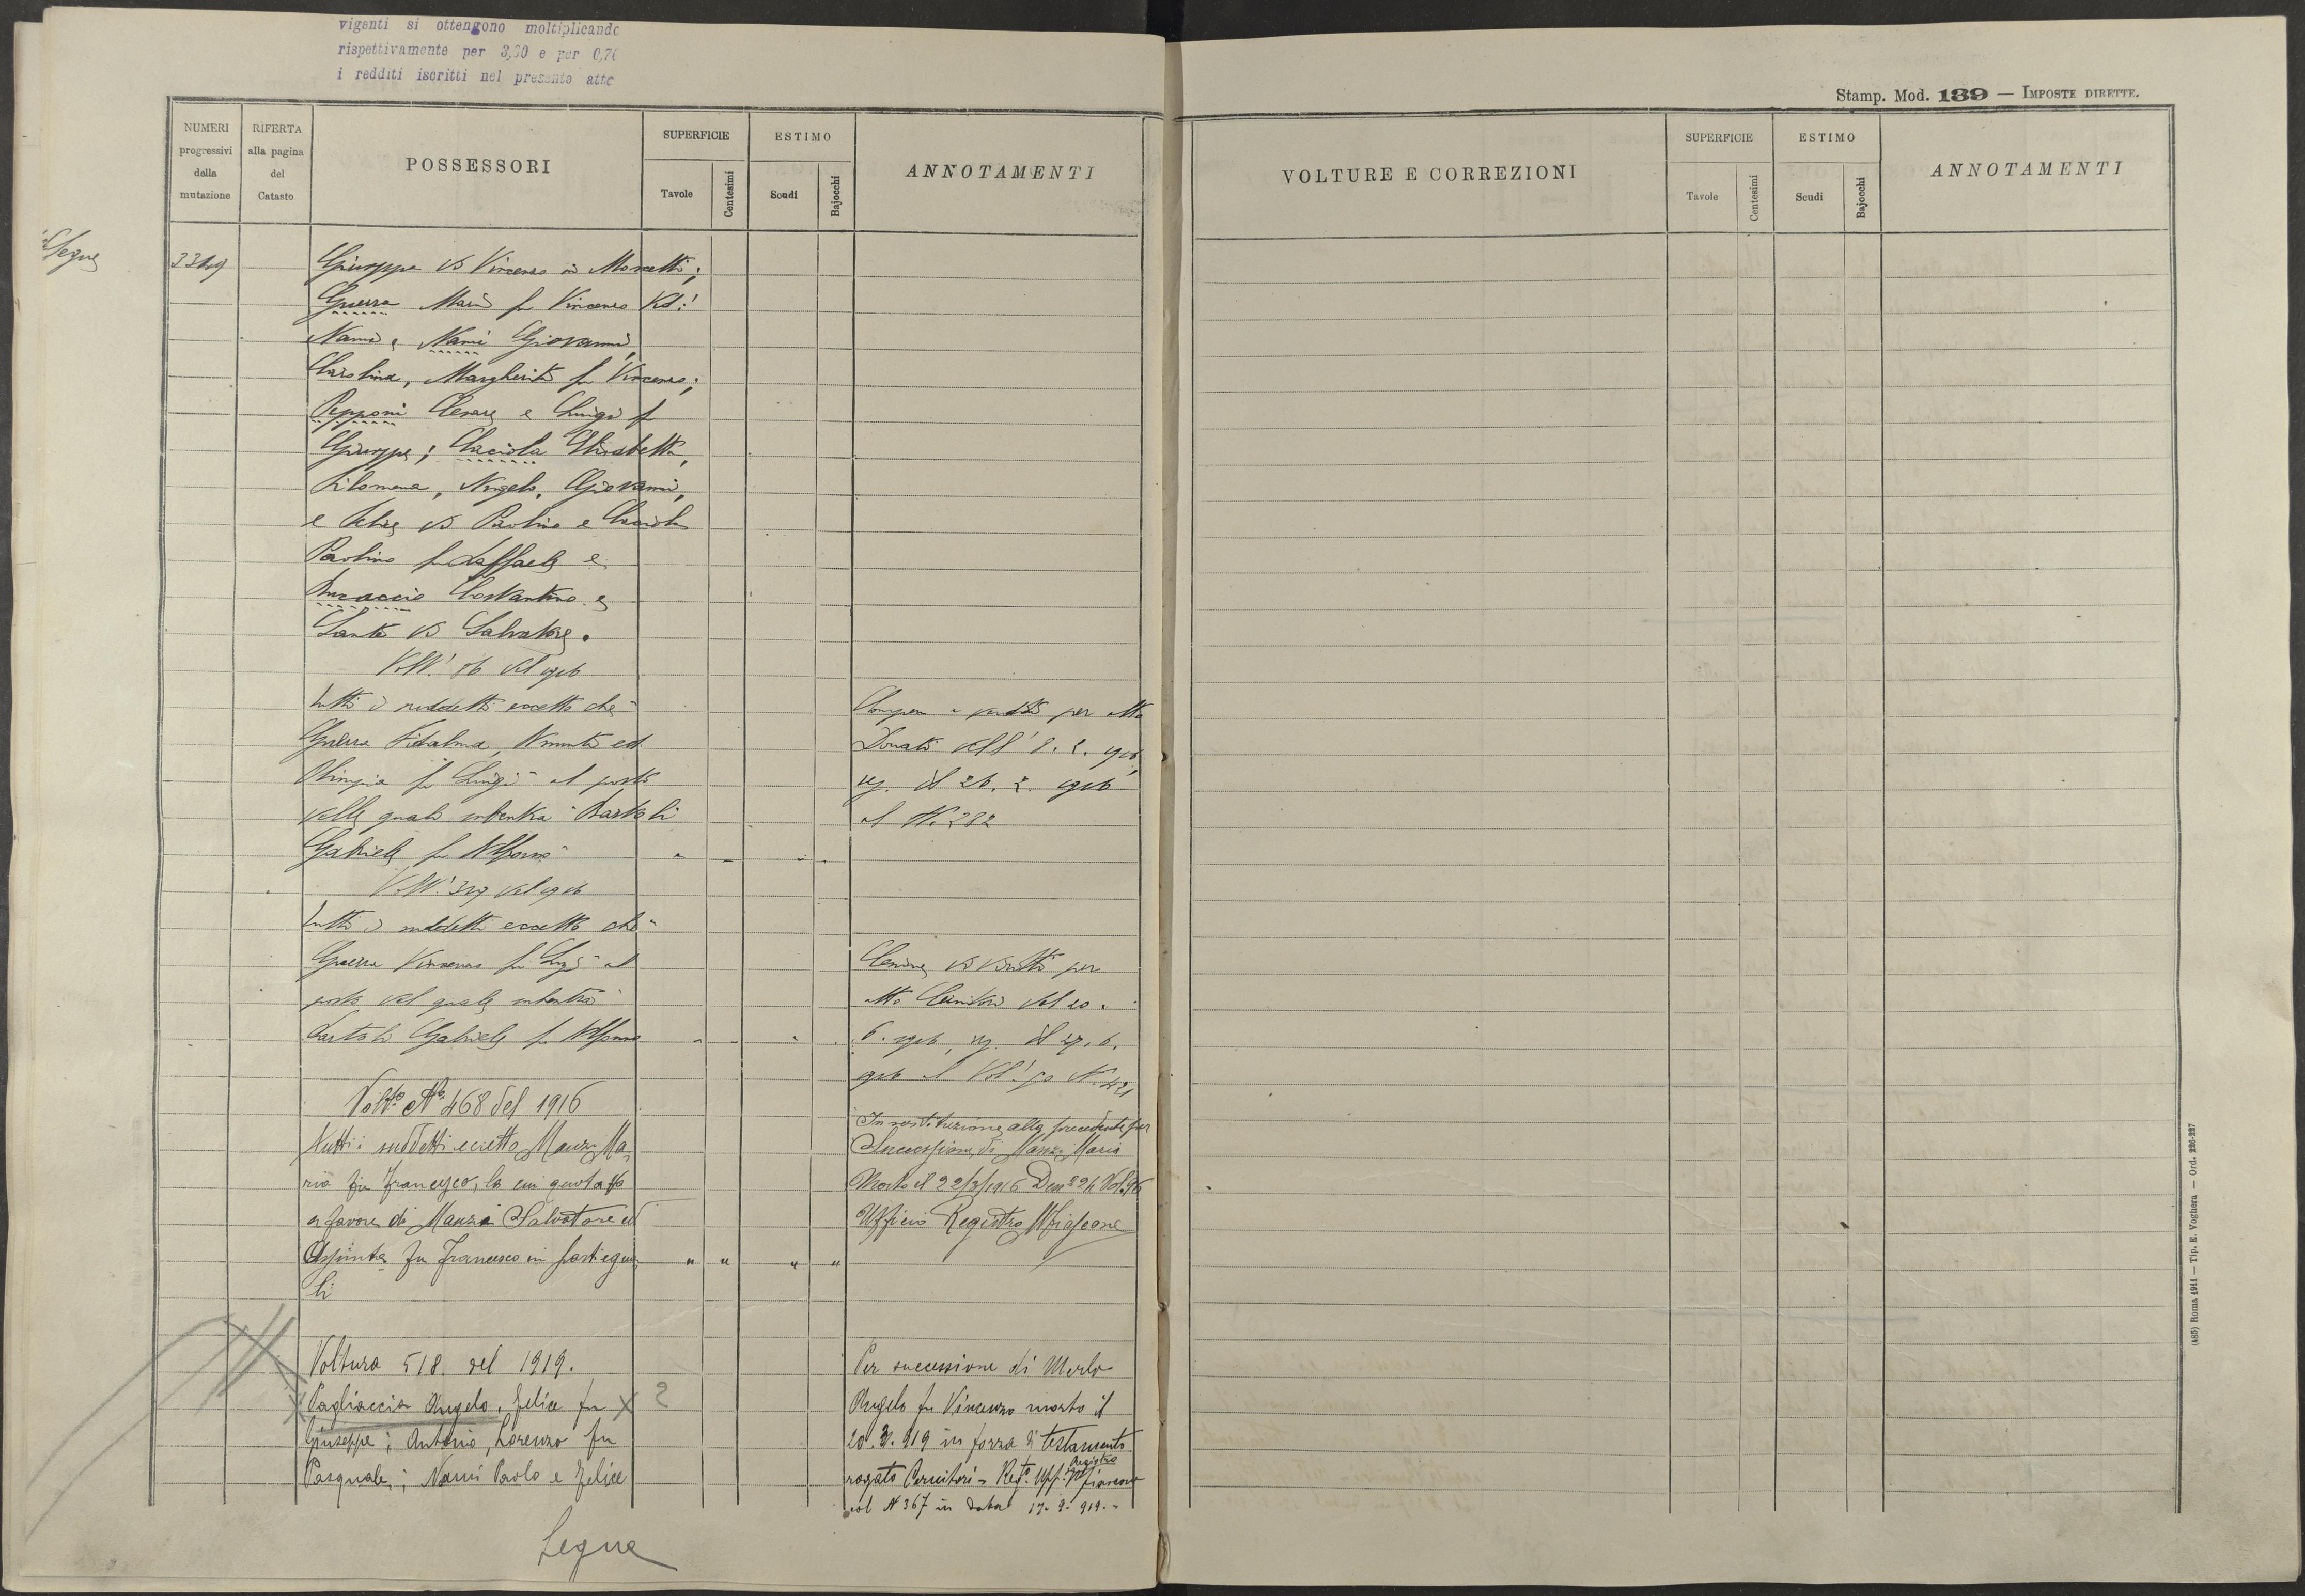 vigenti si ottengono moltiplicando
rispettivamente per 3,30 e per 0,70
i redditi iscritti nel presente atto
Stamp. Mod. 139 — IMPOSTE DIRETTE.
NUMERI progressivi della mutazione
RIFERTA alla pagina del Catasto
POSSESSORI
SUPERFICIE
Tavole
Centesimi
ESTIMO
Scudi
Bajocchi
ANNOTAMENTI
VOLTURE E CORREZIONI
SUPERFICIE
Tavole
Centesimi
ESTIMO
Scudi
Bajocchi
ANNOTAMENTI
Segue
Giuseppe di Vincenzo in Moretti;
Guerra Maria fu Vincenzo Ved:
Nami e Nami Giovanni,
Carolina, Margherita fu Vincenzo;
Pepponi Cesare e Luigi fu
Giuseppe; Elisabetta,
Filomena, Angelo, Giovanni,
e Felice di Paolino e
Paolino fu Raffaele e
Costantino e
Santo di Salvatore.
tutti i suddetti eccetto che
Guerra Fidalma, Annunta ed
Olimpia fu Luigi al posto
delle quali subentra Bartoli
Gabriele fu Alfonso
tutti i suddetti eccetto che
Guerra Vincenzo fu Luigi al
posto del quale subentra
Bartoli Gabriele fu Alfonso
Compra e vendita per atto
Donati dell' 8. 2. 916,
reg. il 26. 2. 916
al N. 282
Cessione di diritti per
atto Cernitori del 20.
6. 916, reg. il 27. 6.
916 al Vol. 50 N. 421
Voltª Nº 468 del 1916
tutti i suddetti eccetto Manzi Ma
ria fu Francesco, la cui quota va
a favore di Manzi Salvatore ed
Assunta fu Francesco in parti egua
li
In sostituzione alla precedente per
Successione di Manzi Maria
Morta il 22/3/1916 Denª 24 Vol. 96
Ufficio Registro Mfiascone
Voltura 518 del 1919.
Pagliaccia Angelo, Felice fu
Giuseppe; Antonio, Lorenzo fu
Pasquale; Nami Paolo e Felice
2
Per successione di Merlo
Angelo fu Vincenzo morto il
20.3.919 in forza di testamento
rogato Cernitori - Regº. Uff. Registro Mfiascone
vol N 367 in data 17-9-919.-
Segue
(485) Roma 1911 — Tip. E. Voghera — Ord. 226-227